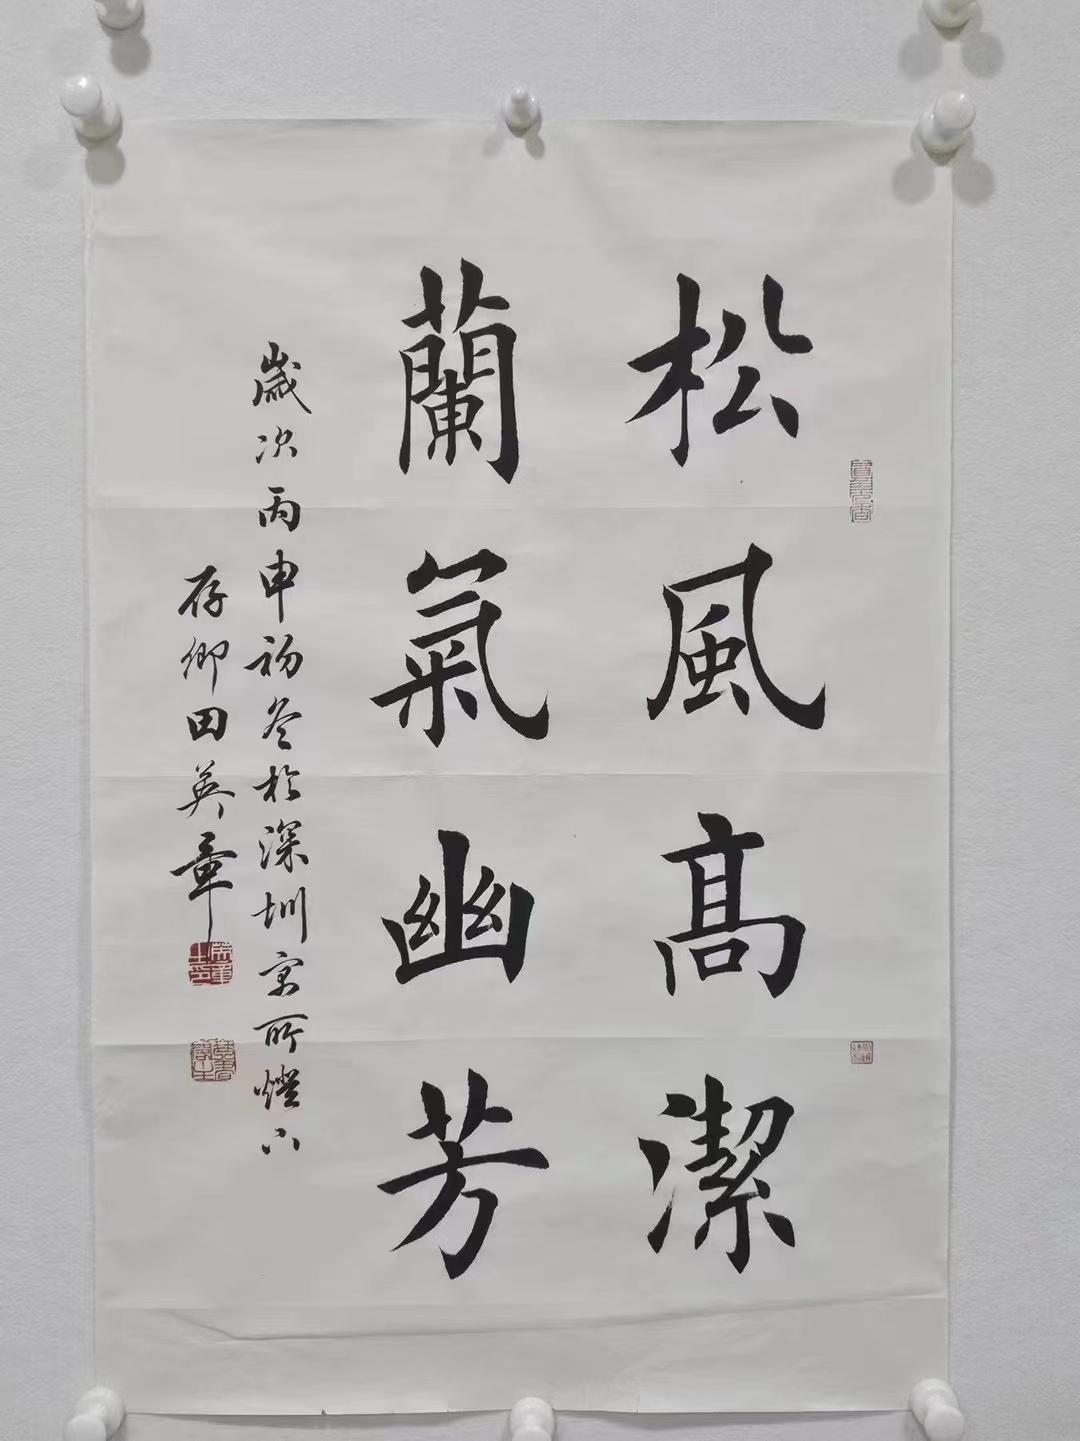 松風高潔
蘭氣幽芳
歲次丙申初冬於深圳寓所燈下
存卿田英章